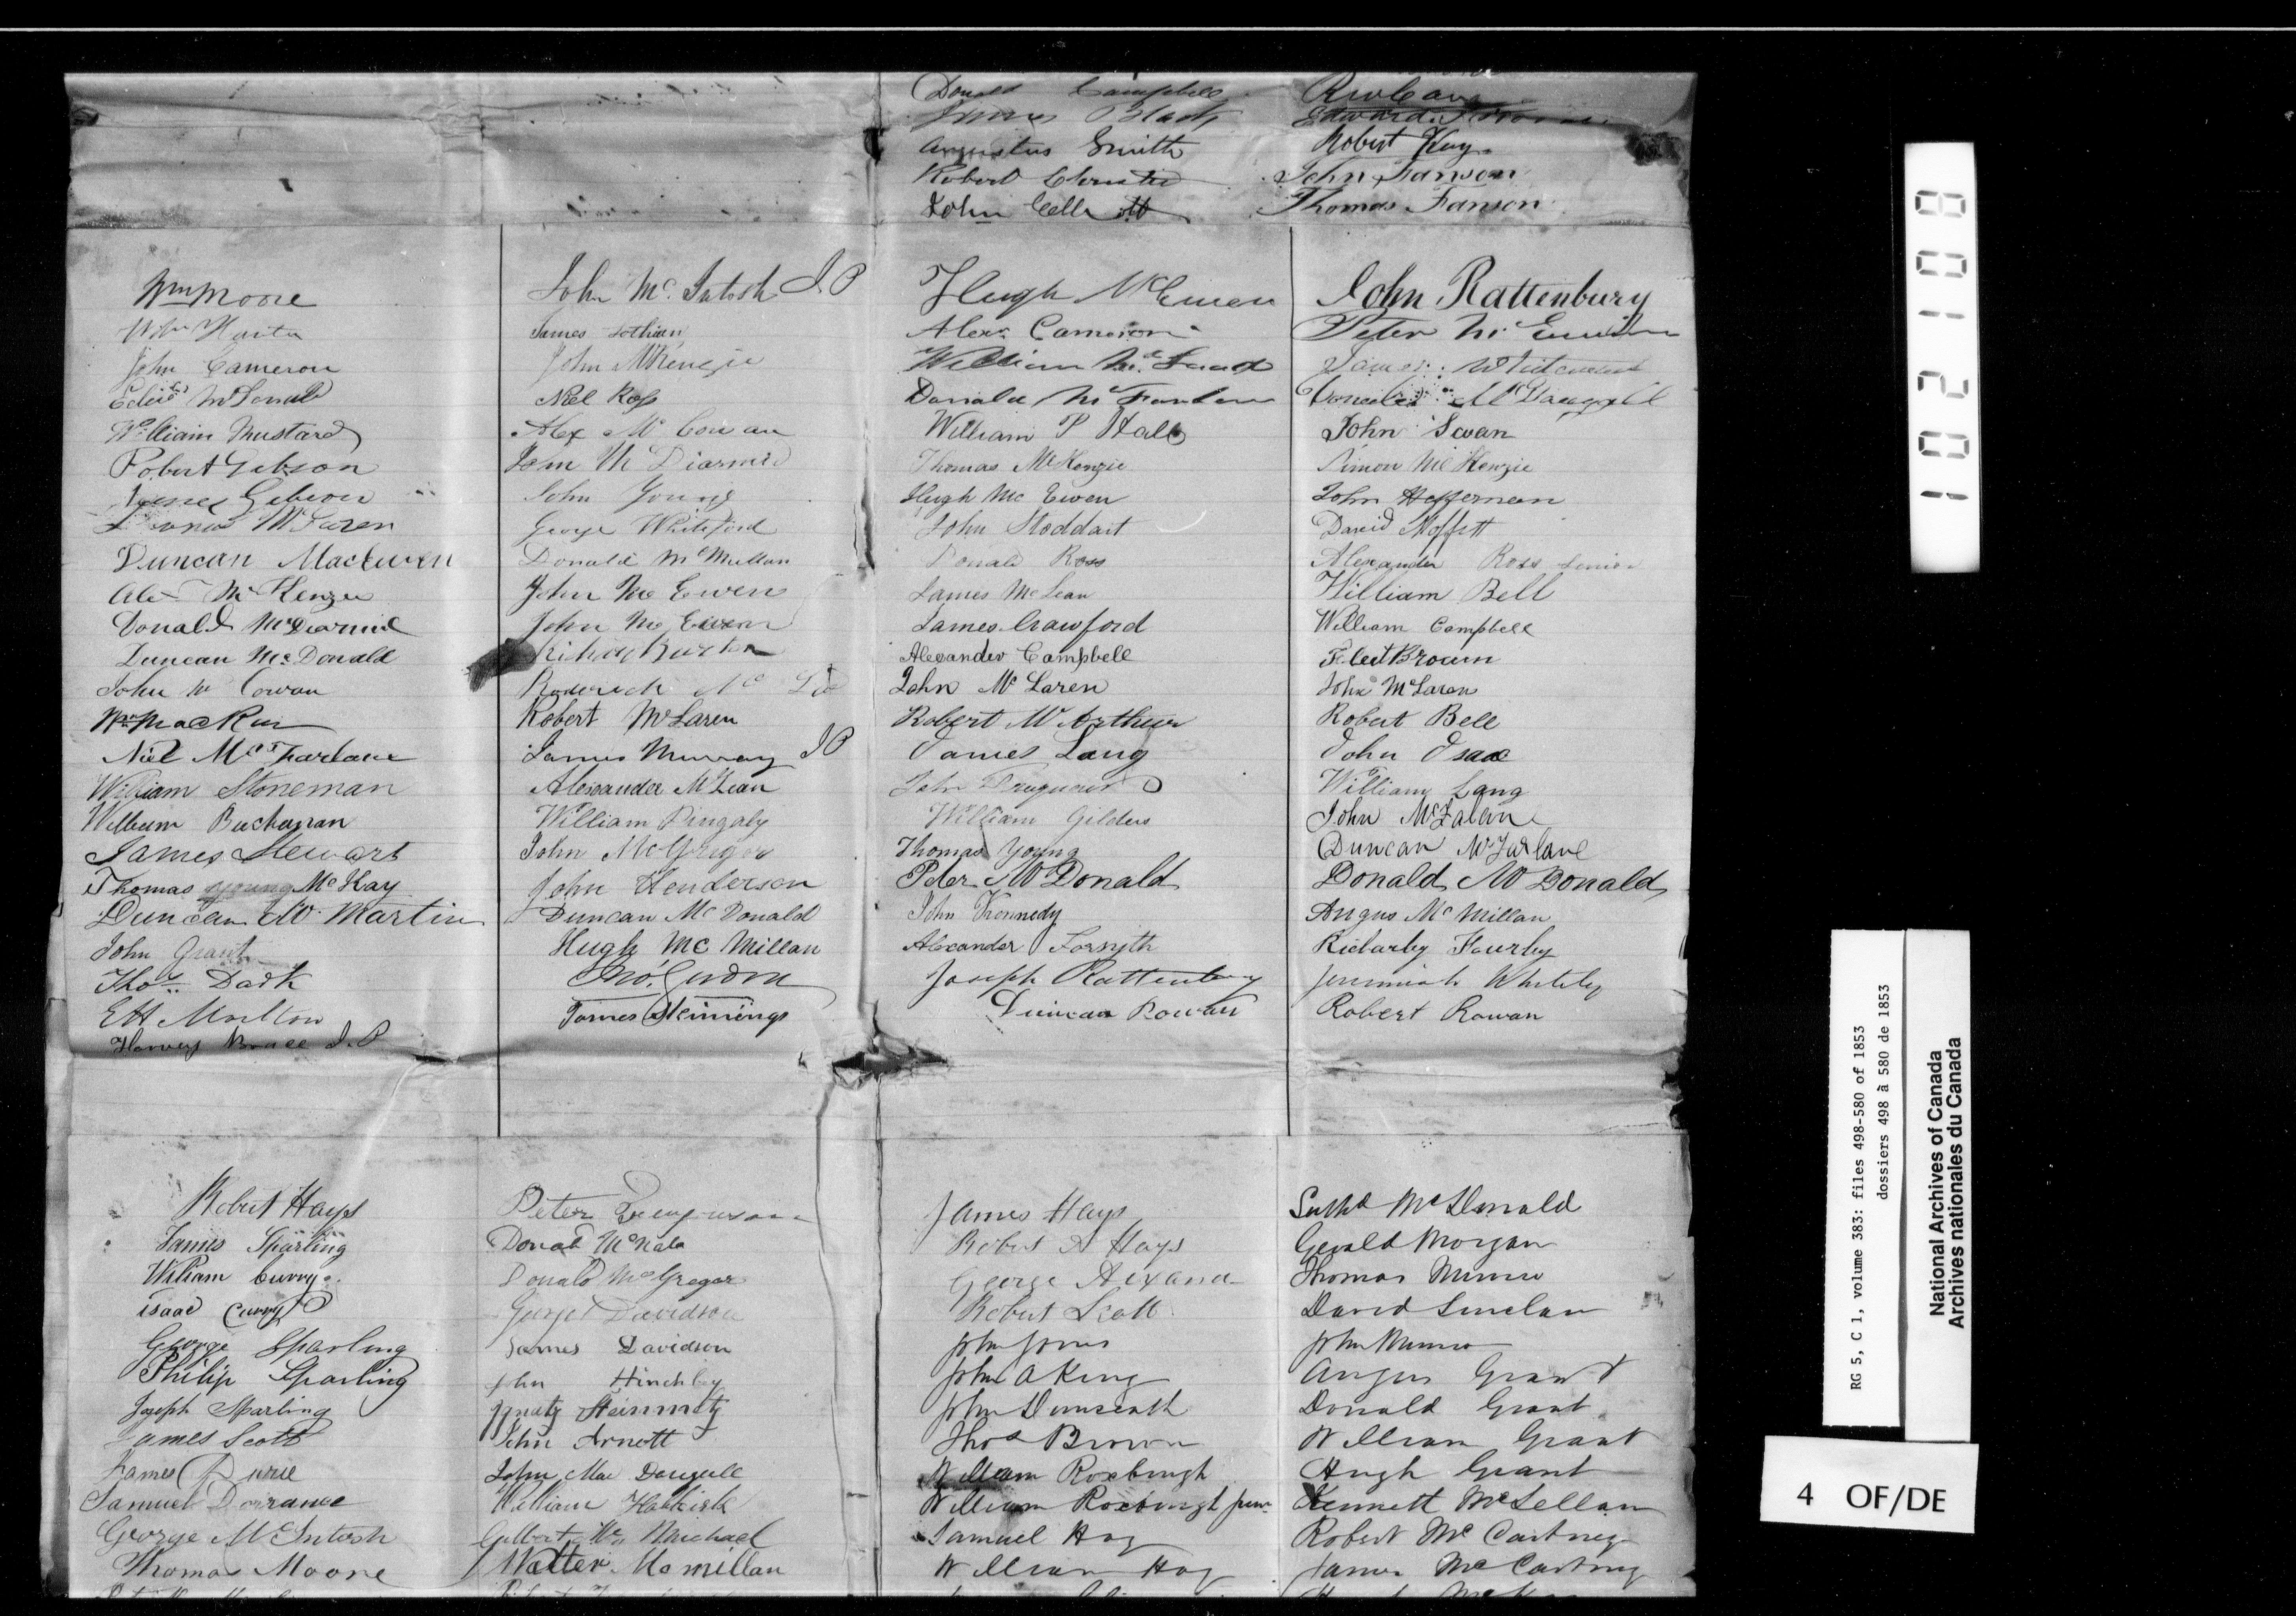 Donald Campbell
James Black
Angustus Smith
Robert Christie
John
Edward
Robert Kay
John Fanson
Thomas Fanson
Wm Moore
Wm
John Cameron
McDonald
William Mustard
Robert Gibson
Gibson
McLaren
Duncan MacEwen
Alex McKenzie
Donald McDiarmid
Duncan McDonald
John Mc Cowan
Wm MacKay
Niel McFharlane
William Stoneman
William Buchanan
James Stewart
Thomas young McKay
Duncan Mc Martin
John Grant
Thos Dark
EH Moulton
Harvey J.P
John McIntosh J.P
James Lothian
John McKenzie
Niel Ross
Alex McCowan
John McDiarmid
John Young
George Whiteford
Donald McMullan
John McEwen
John McEwen
Burton
Roderick Mc
Robert McLaren
James Murray J P
Alexander McLean
William Pingaly
John McGregor
John Henderson
Duncan McDonald
Hugh McMillan
Jno.
James Hennings
Hugh McEwen
Alexr Cameron
William
Donald McFarlane
William P Hall
Thomas McKenzie
Hugh McEwen
John Stoddart
Donald Ross
James McLean
James Crawford
Alexander Campbell
John McLaren
Robert McArthur
James Lang
John
William Gilders
Thomas Young
Peter McDonald
John Kennedy
Alexander Forsyth
Joseph Rattenbury
Duncan Rowan
John Rattenbury
Peter McEwen
James
McDougall
John Swan
Simon McKenzie
John Heffernan
David Moffett
Alexander Ross Senior
William Bell
William Campbell
Brown
John McLaren
Robert Bell
John Isaac
William Lang
John McFalan
Duncan McFarlane
Donald McDonald
Angus McMillan
Jeremiah Whitely
Robert Rowan
Robert Hays
James Sparling
William Curry
isaac Curry
George Sparling
Philip Sparling
Joseph Sparling
James Scott
James
Samuel Dorrance
George McIntosh
Thomas Moore
Peter
Donald McNab
Donald McGregor
George Davidson
James Davidson
John Hinchley
Ignatz Steinmetz
John Arnott
John MacDougall
William Habkirk
Gilbert McMichael
Walter Mcmillan
James Hays
Robert A Hays
George
Robert Scott
John Jones
John A King
John Dunseath
Thos Brown
William Roxburgh
William Roxburgh junr
Samuel Hog
William Hog
McDonald
Gerald Morgan
Thomas Munro
David Sinclair
John Munro
Angus Grant
Donald Grant
William Grant
Hugh Grant
Kennett McLellan
Robert McCartney
James McCartney
102108
RG 5, C 1, volume 383: files 498-580 of 1853
dossiers 498 à 580 de 1853
National Archives of Canada
Archives nationales du Canada
4 OF/DE